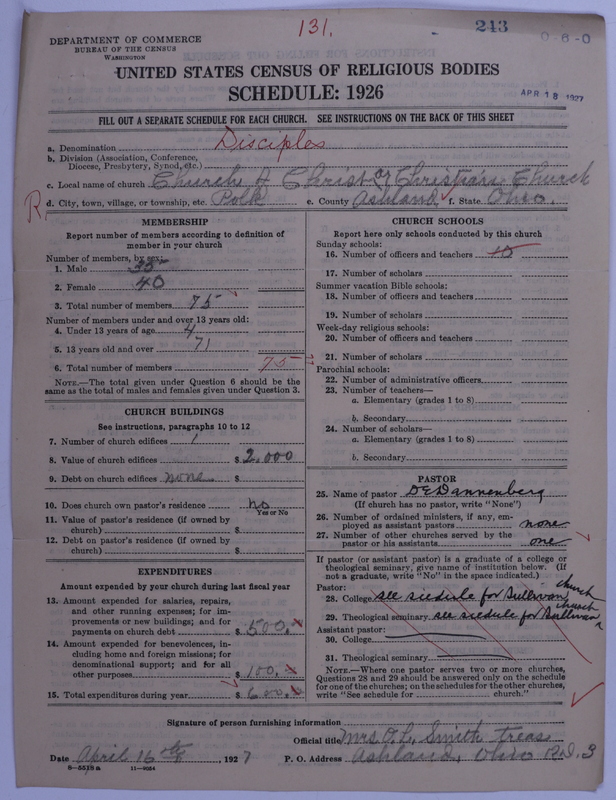 131.
243
0-6-0
DEPARTMENT OF COMMERCE
BUREAU OF THE CENSUS
WASHINGTON
UNITED STATES CENSUS OF RELIGIOUS BODIES
SCHEDULE: 1926
APR 18 1927
FILL OUT A SEPARATE SCHEDULE FOR EACH CHURCH. SEE INSTRUCTIONS ON THE BACK OF THIS SHEET
a. Denomination Disciples
b. Division (Association, Conference, Diocese, Presbytery, Synod, etc.)
c. Local name of church Church of Christ or Christian Church
R d. City, town, village, or township, etc. Polk e. County Ashland f. State Ohio.
MEMBERSHIP
Report number of members according to definition of member in your church
Number of members, by sex:
1. Male 35
2. Female 40
3. Total number of members 75
Number of members under and over 13 years old:
4. Under 13 years of age 4
5. 13 years old and over 71
6. Total number of members 75
NOTE.—The total given under Question 6 should be the same as the total of males and females given under Question 3.
CHURCH BUILDINGS
See instructions, paragraphs 10 to 12
7. Number of church edifices 1
8. Value of church edifices $ 2,000
9. Debt on church edifices none $
10. Does church own pastor's residence no
Yes or No
11. Value of pastor's residence (if owned by church) $
12. Debt on pastor's residence (if owned by church) $
EXPENDITURES
Amount expended by your church during last fiscal year
13. Amount expended for salaries, repairs, and other running expenses; for improvements or new buildings; and for payments on church debt $ 500.
14. Amount expended for benevolences, including home and foreign missions; for denominational support; and for all other purposes $ 100.
15. Total expenditures during year $ 600.
CHURCH SCHOOLS
Report here only schools conducted by this church
Sunday schools:
16. Number of officers and teachers 10
17. Number of scholars
Summer vacation Bible schools:
18. Number of officers and teachers
19. Number of scholars
Week-day religious schools:
20. Number of officers and teachers
21. Number of scholars
Parochial schools:
22. Number of administrative officers
23. Number of teachers—
a. Elementary (grades 1 to 8)
b. Secondary
24. Number of scholars—
a. Elementary (grades 1 to 8)
b. Secondary
PASTOR
25. Name of pastor D E Dannenberg
(If church has no pastor, write "None")
26. Number of ordained ministers, if any, employed as assistant pastors none
27. Number of other churches served by the pastor or his assistants one
If pastor (or assistant pastor) is a graduate of a college or theological seminary, give name of institution below. (If not a graduate, write "No" in the space indicated.)
Pastor:
28. College see scedule for Sullivan church
29. Theological seminary see scedule for Sullivan church
Assistant pastor:
30. College
31. Theological seminary
NOTE.—Where one pastor serves two or more churches, Questions 28 and 29 should be answered only on the schedule for one of the churches; on the schedules for the other churches, write "See schedule for ____ church."
Signature of person furnishing information
Official title Mrs O. L. Smith treas
Date April 16th, 1927 P. O. Address Ashland, Ohio R.D. 3
8—5518a 11—9054